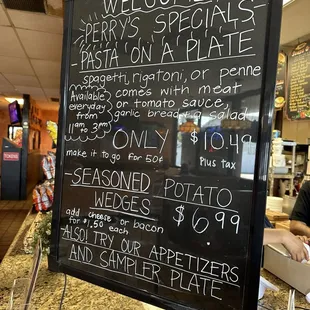 WELCOME
PERRY'S SPECIALS
PASTA ON A PLATE
spagetti, rigatoni, or penne
Available everyday from 11am to 3pm
comes with meat
or tomato sauce,
garlic bread, salad
ONLY $10.49
Plus tax
make it to go for 50¢
SEASONED POTATO
WEDGES $6.99
add cheese or bacon
for $1.50 each
ALSO! TRY OUR APPETIZERS
AND SAMPLER PLATE
TOKENS